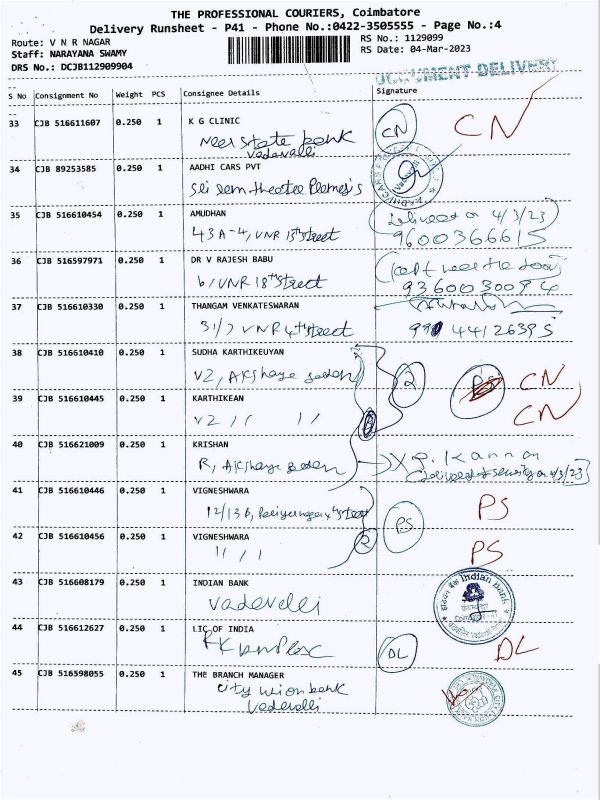 THE PROFESSIONAL COURIERS, Coimbatore
Delivery Runsheet - P41 - Phone No.:0422-3505555 - Page No.:4
Route: V N R NAGAR
RS No.: 1129099
Staff: NARAYANA SWAMY
RS Date: 04-Mar-2023
DRS No.: DCJB112909904
DOCUMENT DELIVERY
S No Consignment No Weight PCS Consignee Details Signature
33 CJB 516611607 0.250 1 K G CLINIC
Near state bank CN CN
Vadavalli
34 CJB 89253585 0.250 1 AADHI CARS PVT
35 CJB 516610454 0.250 1 AMUDHAN
Delivered on 4/3/23
43 A-4, VNR 13th street
9600366615
36 CJB 516597971 0.250 1 DR V RAJESH BABU
6, VNR 18th street
9360030094
37 CJB 516610330 0.250 1 THANGAM VENKATESWARAN
31/7 VNR 4th street
38 CJB 516610410 0.250 1 SUDHA KARTHIKEUYAN
V2, Akshaya garden 2 PS CN
39 CJB 516610445 0.250 1 KARTHIKEAN
V2 ,, ,, CN
40 CJB 516621009 0.250 1 KRISHAN
R, Akshaya garden X P. Kannan
Delivered security on 4/3/23
41 CJB 516610446 0.250 1 VIGNESHWARA
PS PS
42 CJB 516610456 0.250 1 VIGNESHWARA
,, ,, 2 PS
43 CJB 516608179 0.250 1 INDIAN BANK
Vadavalli
Indian Bank
44 CJB 516612627 0.250 1 LIC OF INDIA
DL DL
45 CJB 516598055 0.250 1 THE BRANCH MANAGER
City union bank
Vadavalli